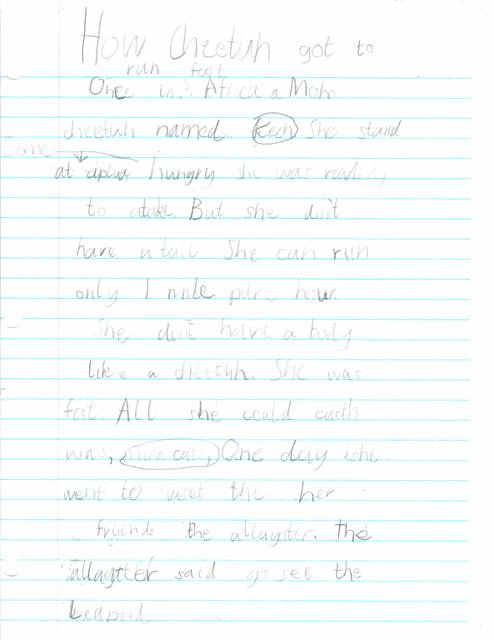 How cheetuh got to
run fast
Once in Africa a Mom
cheetuh named She stard
Some
at hungry she was readdy
to atake. But she din't
have a tail She can run
only 1 mile pure hour.
She din't have a body
like a cheetuh. She was
fat. All she could cacth
was, One day she
went to viset the her
friends the allagater. The
allagtter said go see the